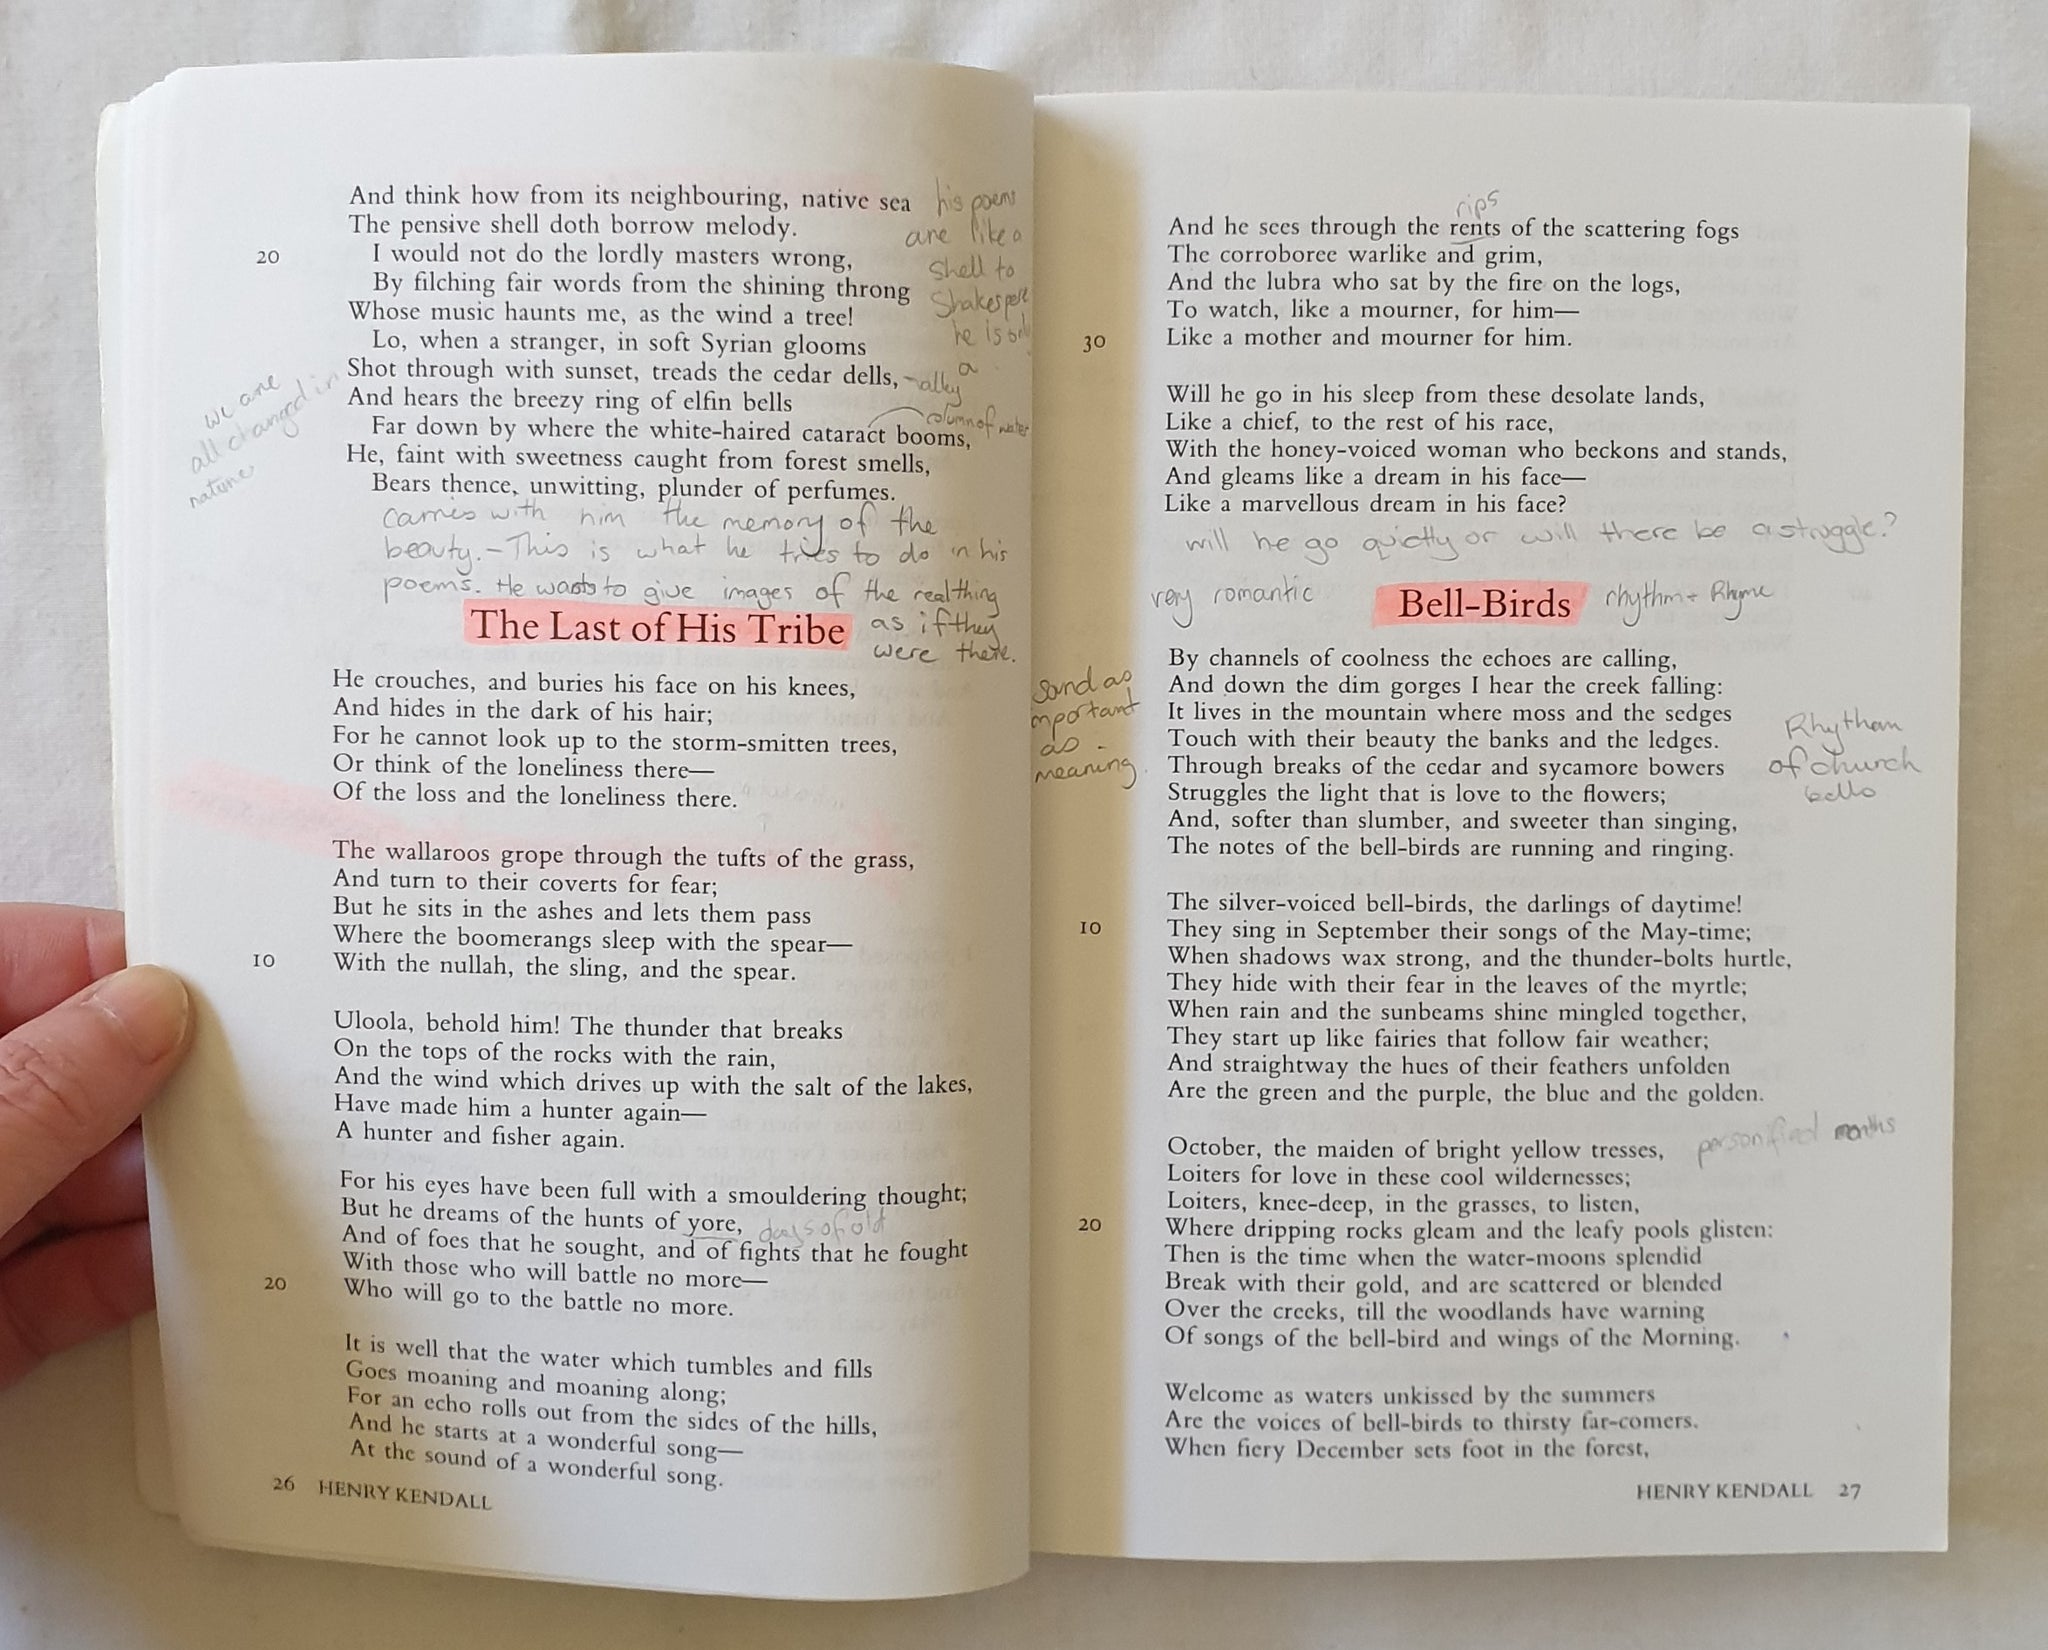 And think how from its neighbouring, native sea
his poems
The pensive shell doth borrow melody.
are like a
20 I would not do the lordly masters wrong,
shell to
By filching fair words from the shining throng
Shakespere
Whose music haunts me, as the wind a tree!
he is
Lo, when a stranger, in soft Syrian glooms
a
Shot through with sunset, treads the cedar dells,
And hears the breezy ring of elfin bells
column of water
Far down by where the white-haired cataract booms,
we are
all changed in
nature
He, faint with sweetness caught from forest smells,
Bears thence, unwitting, plunder of perfumes.
carries with him the memory of the
beauty. - This is what he tries to do in his
poems. He wants to give images of the real thing
as if they
were there.
The Last of His Tribe
He crouches, and buries his face on his knees,
And hides in the dark of his hair;
For he cannot look up to the storm-smitten trees,
Or think of the loneliness there—
Of the loss and the loneliness there.
The wallaroos grope through the tufts of the grass,
And turn to their coverts for fear;
But he sits in the ashes and lets them pass
Where the boomerangs sleep with the spear—
10 With the nullah, the sling, and the spear.
Uloola, behold him! The thunder that breaks
On the tops of the rocks with the rain,
And the wind which drives up with the salt of the lakes,
Have made him a hunter again—
A hunter and fisher again.
For his eyes have been full with a smouldering thought;
But he dreams of the hunts of yore,
days of old
And of foes that he sought, and of fights that he fought
With those who will battle no more—
20 Who will go to the battle no more.
It is well that the water which tumbles and fills
Goes moaning and moaning along;
For an echo rolls out from the sides of the hills,
And he starts at a wonderful song—
At the sound of a wonderful song.
26 HENRY KENDALL
rips
And he sees through the rents of the scattering fogs
The corroboree warlike and grim,
And the lubra who sat by the fire on the logs,
To watch, like a mourner, for him—
30 Like a mother and mourner for him.
Will he go in his sleep from these desolate lands,
Like a chief, to the rest of his race,
With the honey-voiced woman who beckons and stands,
And gleams like a dream in his face—
Like a marvellous dream in his face?
will he go quietly or will there be a struggle?
very romantic
Bell-Birds
rhythm + Rhyme
By channels of coolness the echoes are calling,
And down the dim gorges I hear the creek falling:
It lives in the mountain where moss and the sedges
Touch with their beauty the banks and the ledges.
Through breaks of the cedar and sycamore bowers
Struggles the light that is love to the flowers;
And, softer than slumber, and sweeter than singing,
The notes of the bell-birds are running and ringing.
Sound as
important
as
meaning
Rhytham
of church
bells
The silver-voiced bell-birds, the darlings of daytime!
10 They sing in September their songs of the May-time;
When shadows wax strong, and the thunder-bolts hurtle,
They hide with their fear in the leaves of the myrtle;
When rain and the sunbeams shine mingled together,
They start up like fairies that follow fair weather;
And straightway the hues of their feathers unfolden
Are the green and the purple, the blue and the golden.
October, the maiden of bright yellow tresses,
personified months
Loiters for love in these cool wildernesses;
Loiters, knee-deep, in the grasses, to listen,
20 Where dripping rocks gleam and the leafy pools glisten:
Then is the time when the water-moons splendid
Break with their gold, and are scattered or blended
Over the creeks, till the woodlands have warning
Of songs of the bell-bird and wings of the Morning.
Welcome as waters unkissed by the summers
Are the voices of bell-birds to thirsty far-comers.
When fiery December sets foot in the forest,
HENRY KENDALL 27